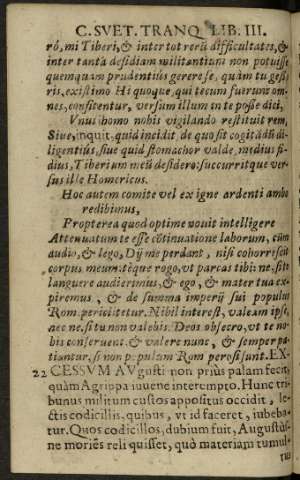 C. SVET. TRANQ. LIB. III.
rò, mi Tiberi, & inter tot rerũ difficultates, &
inter tantã desidiam militantium non potuisse
quemquam prudentius gerere se, quàm tu gesse
ris, existimo. Hi quoque, qui tecum fuerunt om-
nes, confitentur, versum illum in te posse dici,
Vnus homo nobis vigilando restituit rem,
Siue, inquit, quid incidit, de quo sit cogitãdũ di-
ligentiùs, siue quid stomachor valde, medius fi-
dius, Tiberium meũ desidero: succurritque ver-
sus ille Homericus.
Hoc autem comite vel ex igne ardenti ambo
redibimus,
Propterea quod optime nouit intelligere
Attenuatum te esse cõtinuatione laborum, cùm
audio, & lego, Dij me perdant, nisi cohorrescit
corpus meum: téque rogo, vt parcas tibi: ne, si te
languere audierimus, & ego, & mater tua ex-
piremus, & de summa imperij sui populus
Rom. periclitetur. Nihil interest, valeam ipse,
nec ne, si tu non valebis. Deos obsecro, vt te no-
bis conseruent, & valere nunc, & semper pa-
tiantur, si non populum Rom. perosi sunt. EX-
22 CESSVM AVgusti non priùs palam fecit,
quàm Agrippa iuuene interempto. Hunc tri-
bunus militum custos appositus occidit, le-
ctis codicillis, quibus, vt id faceret, iubeba-
tur. Quos codicillos, dubium fuit, Augustùs-
ne moriẽs reliquisset, quò materiam tumul-
tus